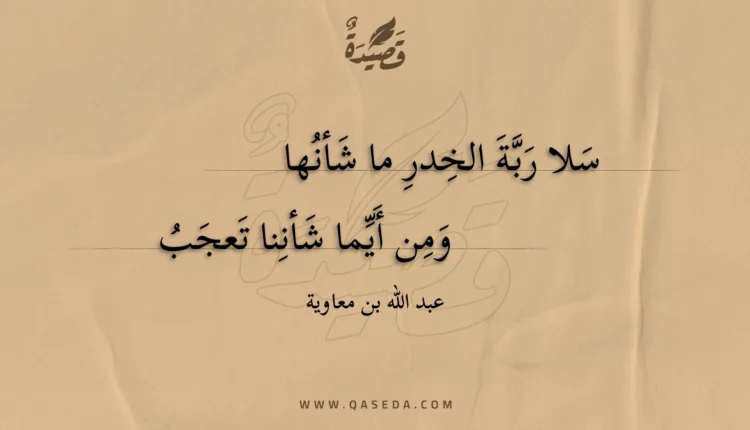 قَصِيْدَةٌ
سَلا رَبَّةَ الخِدرِ ما شَأنُها
وَمِن أَيِّما شَأنِنا تَعجَبُ
عبد الله بن معاوية
WWW.QASEDA.COM